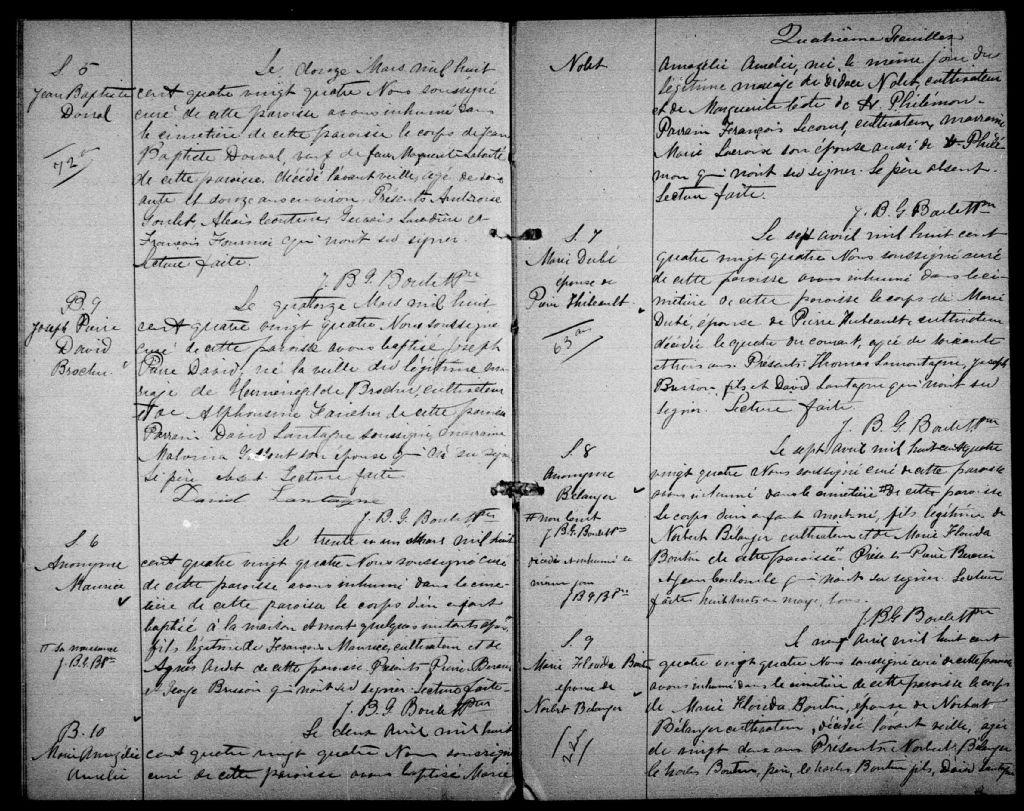 S. 5
Jean Baptiste
Dorval
72 a
Le douze Mars mil huit
cent quatre vingt quatre Nous soussigné
curé de cette paroisse avons inhumé dans
le cimetière de cette paroisse le corps de Jean
Baptiste Dorval, veuf de feue Marguerite
de cette paroisse, décédé l'avant veille, agé de soix
ante et douze ans environ. Présents Ambroise
Goulet, Alexis Couture, Gervais et
François Fournier qui n'ont su signer.
Lecture faite.
J. B. G. Boulet Ptre
B. 9
Joseph Pierre
David
Brochu
Le quatorze Mars mil huit
cent quatre vingt quatre, Nous soussigné
curé de cette paroisse avons baptisé Joseph
Pierre David, né la veille du légitime ma
riage de Herménégilde Brochu, cultivateur
et de Alphonsine Fancher de cette paroisse
Parrain David Lantagne soussigné, marraine
Malvina son épouse qui n'a su signer
le père absent. Lecture faite
David Lantagne
J. B. G. Boulet Ptre
S. 6
Anonyme
Maurice
J. B. G. B. Ptre
Le trente et un Mars mil huit
cent quatre vingt quatre Nous soussigné curé
de cette paroisse avons inhumé dans le cime
tière de cette paroisse le corps d'un enfant
baptisé à la maison et mort quelques instants après,
fils légitime de François Maurice, cultivateur et de
Agnès Audet de cette paroisse. Présents Pierre
et George Busson qui n'ont su signer. Lecture faite.
J. B. G. Boulet Ptre
B. 10
Marie Amazélie
Aurélie
Le deux Avril mil huit
cent quatre vingt quatre Nous soussigné
curé de cette paroisse avons baptisé Marie
Quatrième Feuillet
Nolet
Amazélie Aurélie, née le même jour du
légitime mariage de Didace Nolet, cultivateur
et de Marguerite de St. Philémon.
Parrain François Lecours, cultivateur, marraine
Marie Lacroix son épouse aussi de St. Philé
mon qui n'ont su signer. Le père absent.
Lecture faite.
J. B. G. Boulet Ptre
S. 7
Marie Dubé
épouse de
Pierre Thibeault
63 ans
Le sept avril mil huit cent
quatre vingt quatre Nous soussigné curé
de cette paroisse avons inhumé dans le ci
metière de cette paroisse le corps de Marie
Dubé, épouse de Pierre Thibeault, cultivateur
décédée le quatre du courant, agée de soixante
et trois ans. Présents Thomas Lamontagne, Joseph
Busson fils et David Lantagne qui n'ont su
signer. Lecture faite.
J. B. G. Boulet Ptre
S. 8
Anonyme
Bélanger
J. B. G. Boulet Ptre
décédé et inhumé le
même jour
J B G B Ptre
Le sept Avril mil huit cent quatre
vingt quatre Nous soussigné curé de cette paroisse
avons inhumé dans le cimetière de cette paroisse
le corps d'un enfant fils légitime de
Norbert Bélanger cultivateur et de Marie Florida
Boutin de cette paroisse. Présents Pierre
et Jean Coulombe qui n'ont su signer. Lecture
faite. huit mots en marge, bons.
J. B. G. Boulet Ptre
S. 9
Marie Florida Boutin
épouse de
Norbert Bélanger
Le neuf Avril mil huit cent
quatre vingt quatre Nous soussigné curé de cette paroisse
avons inhumé dans le cimetière de cette paroisse le corps
de Marie Florida Boutin, épouse de Norbert
Bélanger cultivateur, décédée l'avant veille, agée
de vingt deux ans Présents Norbert Bélanger
Boutin, père, Boutin fils, David Lantagne